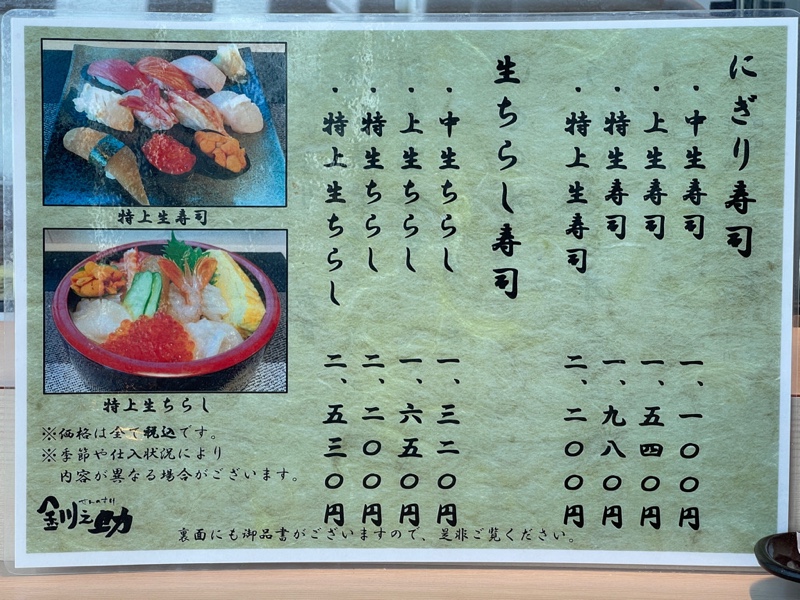 にぎり寿司
・中生寿司 一、一〇〇円
・上生寿司 一、五四〇円
・特生寿司 一、九八〇円
・特上生寿司 二、二〇〇円
生ちらし寿司
・中生ちらし 一、三二〇円
・上生ちらし 一、六五〇円
・特生ちらし 二、二〇〇円
・特上生ちらし 二、五三〇円
特上生寿司
特上生ちらし
※価格は全て税込です。
※季節や仕入状況により
内容が異なる場合がございます。
釧之助
せんのすけ
裏面にも御品書がございますので、是非ご覧ください。